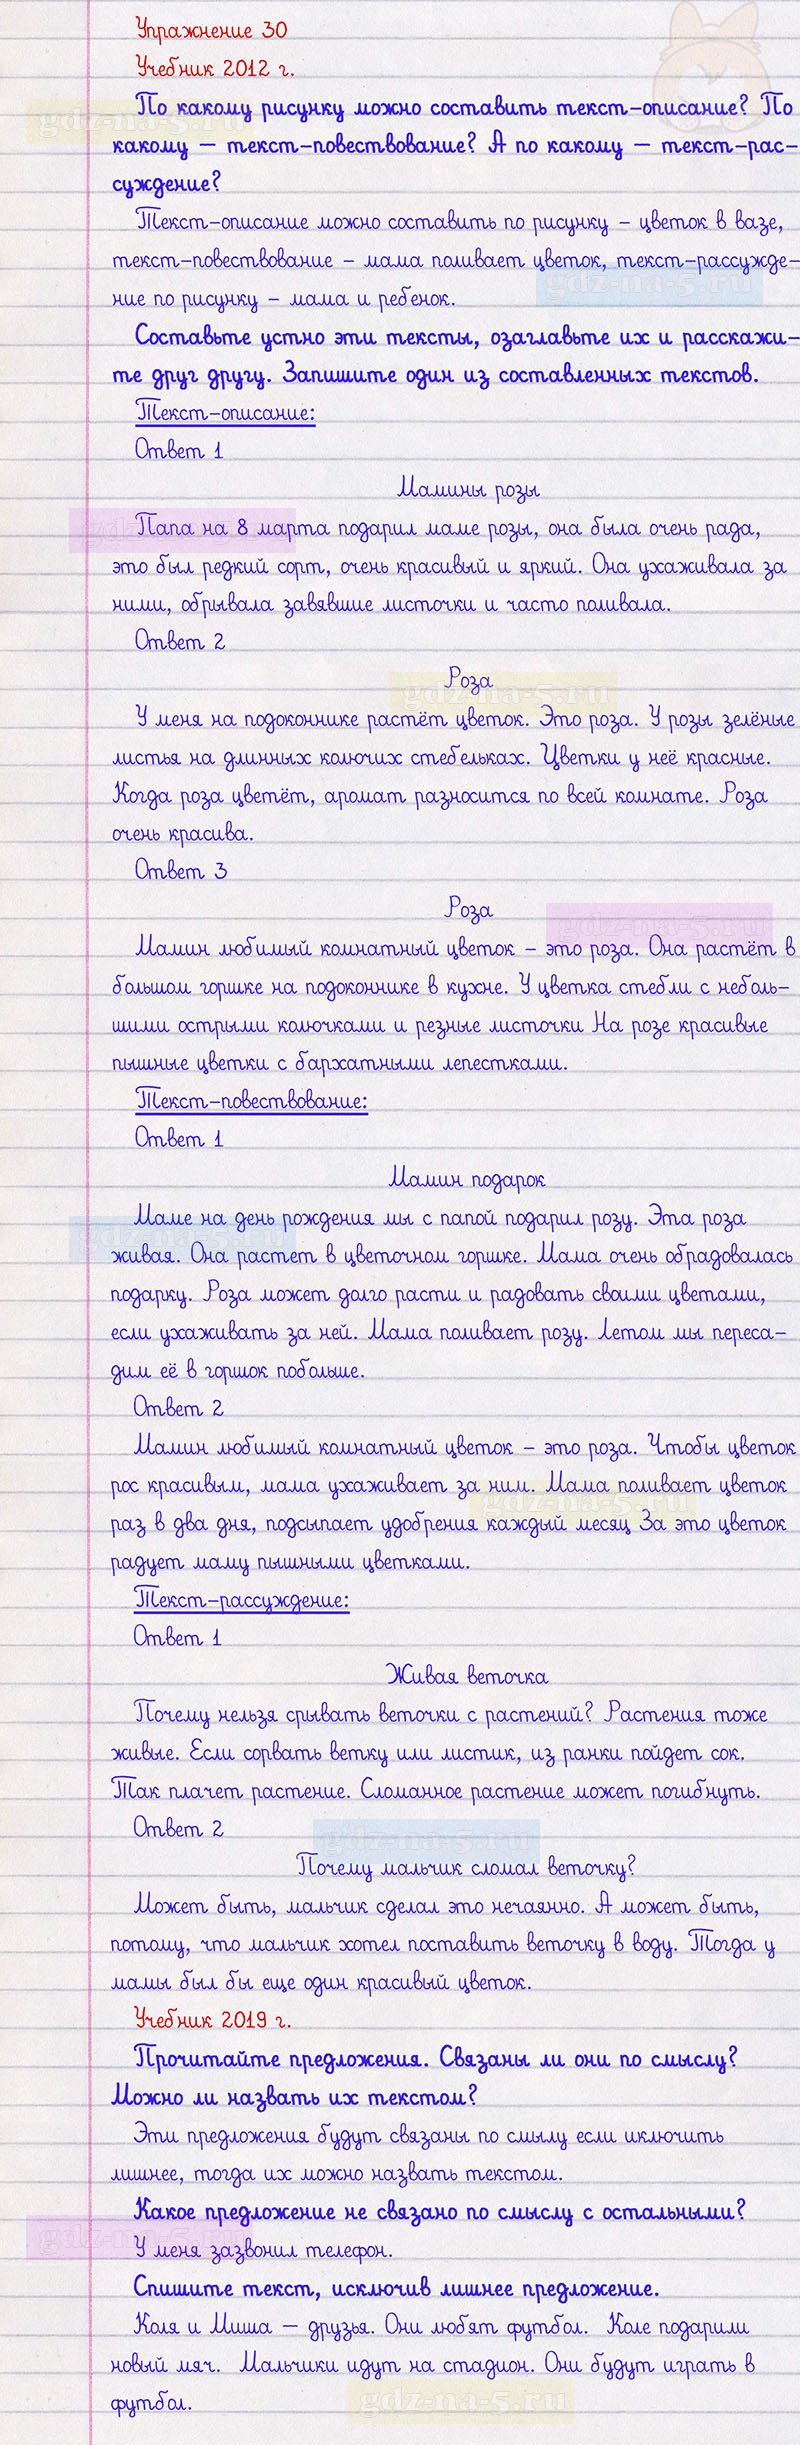 Упражнение 30
Учебник 2012 г.
По какому рисунку можно составить текст-описание? По
какому – текст-повествование? А по какому – текст-рас-
суждение?
Текст-описание можно составить по рисунку – цветок в вазе,
текст-повествование – мама поливает цветок, текст-рассужде-
ние по рисунку – мама и ребенок.
Составьте устно эти тексты, озаглавьте их и расскажи-
те друг другу. Запишите один из составленных текстов.
Текст-описание:
Ответ 1
Мамины розы
Папа на 8 марта подарил маме розы, она была очень рада,
это был редкий сорт, очень красивый и яркий. Она ухаживала за
ними, обрывала завявшие листочки и часто поливала.
Ответ 2
Роза
У меня на подоконнике растёт цветок. Это роза. У розы зелёные
листья на длинных колючих стебельках. Цветки у неё красные.
Когда роза цветёт, аромат разносится по всей комнате. Роза
очень красива.
Ответ 3
Роза
Мамин любимый комнатный цветок – это роза. Она растёт в
большом горшке на подоконнике в кухне. У цветка стебли с неболь-
шими острыми колючками и резные листочки На розе красивые
пышные цветки с бархатными лепестками.
Текст-повествование:
Ответ 1
Мамин подарок
Маме на день рождения мы с папой подарил розу. Эта роза
живая. Она растет в цветочном горшке. Мама очень обрадовалась
подарку. Роза может долго расти и радовать своими цветами,
если ухаживать за ней. Мама поливает розу. Летом мы переса-
дим её в горшок побольше.
Ответ 2
Мамин любимый комнатный цветок – это роза. Чтобы цветок
рос красивым, мама ухаживает за ним. Мама поливает цветок
раз в два дня, подсыпает удобрения каждый месяц За это цветок
радует маму пышными цветками.
Текст-рассуждение:
Ответ 1
Живая веточка
Почему нельзя срывать веточки с растений? Растения тоже
живые. Если сорвать ветку или листик, из ранки пойдет сок.
Так плачет растение. Сломанное растение может погибнуть.
Ответ 2
Почему мальчик сломал веточку?
Может быть, мальчик сделал это нечаянно. А может быть,
потому, что мальчик хотел поставить веточку в воду. Тогда у
мамы был бы еще один красивый цветок.
Учебник 2019 г.
Прочитайте предложения. Связаны ли они по смыслу?
Можно ли назвать их текстом?
Эти предложения будут связаны по смылу если иключить
лишнее, тогда их можно назвать текстом.
Какое предложение не связано по смыслу с остальными?
У меня зазвонил телефон.
Спишите текст, исключив лишнее предложение.
Коля и Миша – друзья. Они любят футбол. Коле подарили
новый мяч. Мальчики идут на стадион. Они будут играть в
футбол.
gdz-na-5.ru
gdz-na-5.ru
gdz-na-5.ru
gdz-na-5.ru
gdz-na-5.ru
gdz-na-5.ru
gdz-na-5.ru
gdz-na-5.ru
gdz-na-5.ru
gdz-na-5.ru